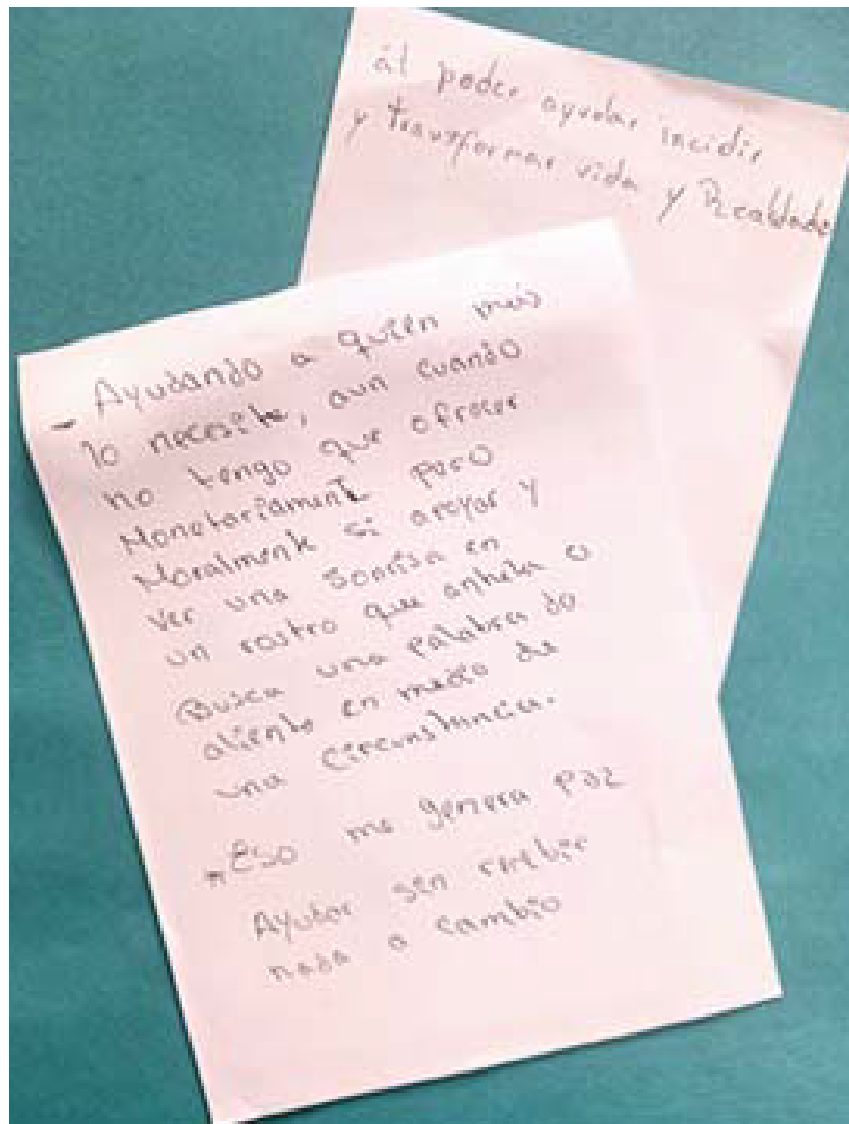 ál poder ayudar incidir
y transformar vida y Realidade
- Ayudando a quien más
lo necesite, aun cuando
no tengo que ofrecer
Monetariamente pero
Moralmente si apoyar y
ver una sonrisa en
un rostro que anhela o
Busca una palabra de
aliento en medio de
una circunstancia.
- Eso me genera paz
Ayudar sin recibir
nada a cambio